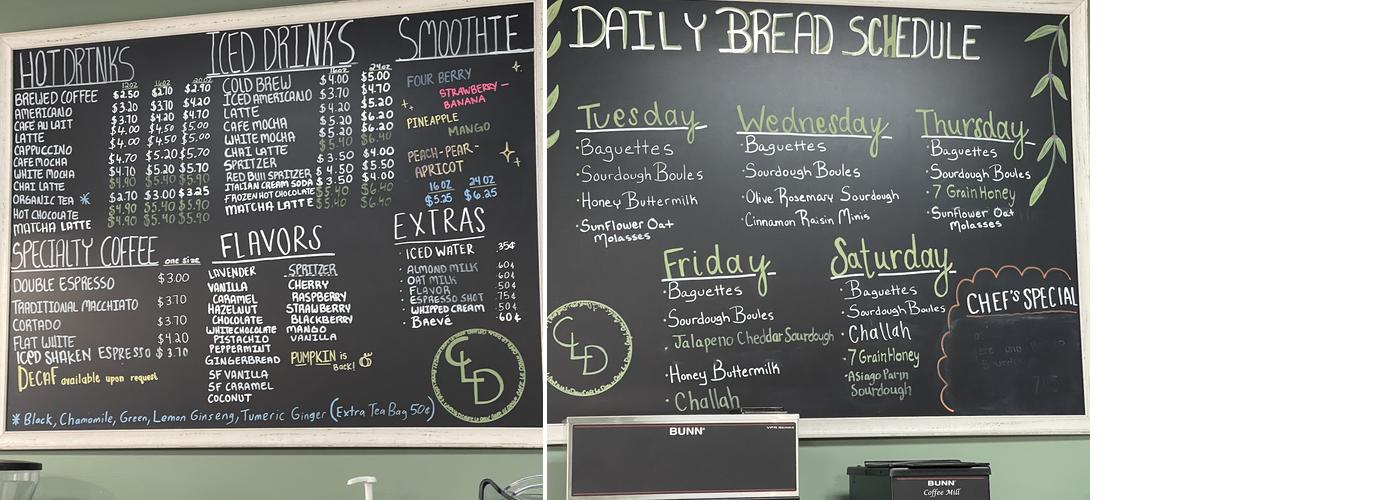 HOT DRINKS
12oz 16oz 20oz
BREWED COFFEE $2.50 $2.70 $2.90
AMERICANO $3.20 $3.70 $4.20
CAFE AU LAIT $3.70 $4.20 $4.70
LATTE $4.00 $4.50 $5.00
CAPPUCCINO $4.00 $4.50 $5.00
CAFE MOCHA $4.70 $5.20 $5.70
WHITE MOCHA $4.70 $5.20 $5.70
CHAI LATTE $4.90 $5.40 $5.90
ORGANIC TEA * $2.70 $3.00 $3.25
HOT CHOCOLATE $4.90 $5.40 $5.90
MATCHA LATTE $4.90 $5.40 $5.90
ICED DRINKS
16oz 24oz
COLD BREW $4.00 $5.00
ICED AMERICANO $3.70 $4.70
LATTE $4.20 $5.20
CAFE MOCHA $5.20 $6.20
WHITE MOCHA $5.20 $6.20
CHAI LATTE $5.40 $6.40
SPRITZER $3.50 $4.00
RED BULL SPRITZER $4.50 $5.50
ITALIAN CREAM SODA $3.50 $4.00
FROZEN HOT CHOCOLATE $5.40 $6.40
MATCHA LATTE $5.40 $6.40
SMOOTHIE
FOUR BERRY
STRAWBERRY-
BANANA
PINEAPPLE
MANGO
PEACH-PEAR-
APRICOT
16 OZ 24 OZ
$5.25 $6.25
SPECIALTY COFFEE one size
DOUBLE ESPRESSO $3.00
TRADITIONAL MACCHIATO $3.70
CORTADO $3.70
FLAT WHITE $4.20
ICED SHAKEN ESPRESSO $3.70
DECAF available upon request
FLAVORS
LAVENDER
VANILLA
CARAMEL
HAZELNUT
CHOCOLATE
WHITE CHOCOLATE
PISTACHIO
PEPPERMINT
GINGERBREAD
SF VANILLA
SF CARAMEL
COCONUT
SPRITZER
CHERRY
RASPBERRY
STRAWBERRY
BLACKBERRY
MANGO
VANILLA
PUMPKIN is
Back!
EXTRAS
· ICED WATER .35¢
· ALMOND MILK .60¢
· OAT MILK .60¢
· FLAVOR .50¢
· ESPRESSO SHOT .75¢
· WHIPPED CREAM .50¢
· Brevé .60¢
CLD
* Black, Chamomile, Green, Lemon Ginseng, Tumeric Ginger (Extra Tea Bag 50¢)
DAILY BREAD SCHEDULE
Tuesday
· Baguettes
· Sourdough Boules
· Honey Buttermilk
· Sunflower Oat
Molasses
Wednesday
· Baguettes
· Sourdough Boules
· Olive Rosemary Sourdough
· Cinnamon Raisin Minis
Thursday
· Baguettes
· Sourdough Boules
· 7 Grain Honey
· Sunflower Oat
Molasses
Friday
· Baguettes
· Sourdough Boules
· Jalapeno Cheddar Sourdough
· Honey Buttermilk
· Challah
Saturday
· Baguettes
· Sourdough Boules
· Challah
· 7 Grain Honey
· Asiago Parm
Sourdough
CHEF'S SPECIAL
CLD
BUNN
VPR Series
BUNN
Coffee Mill